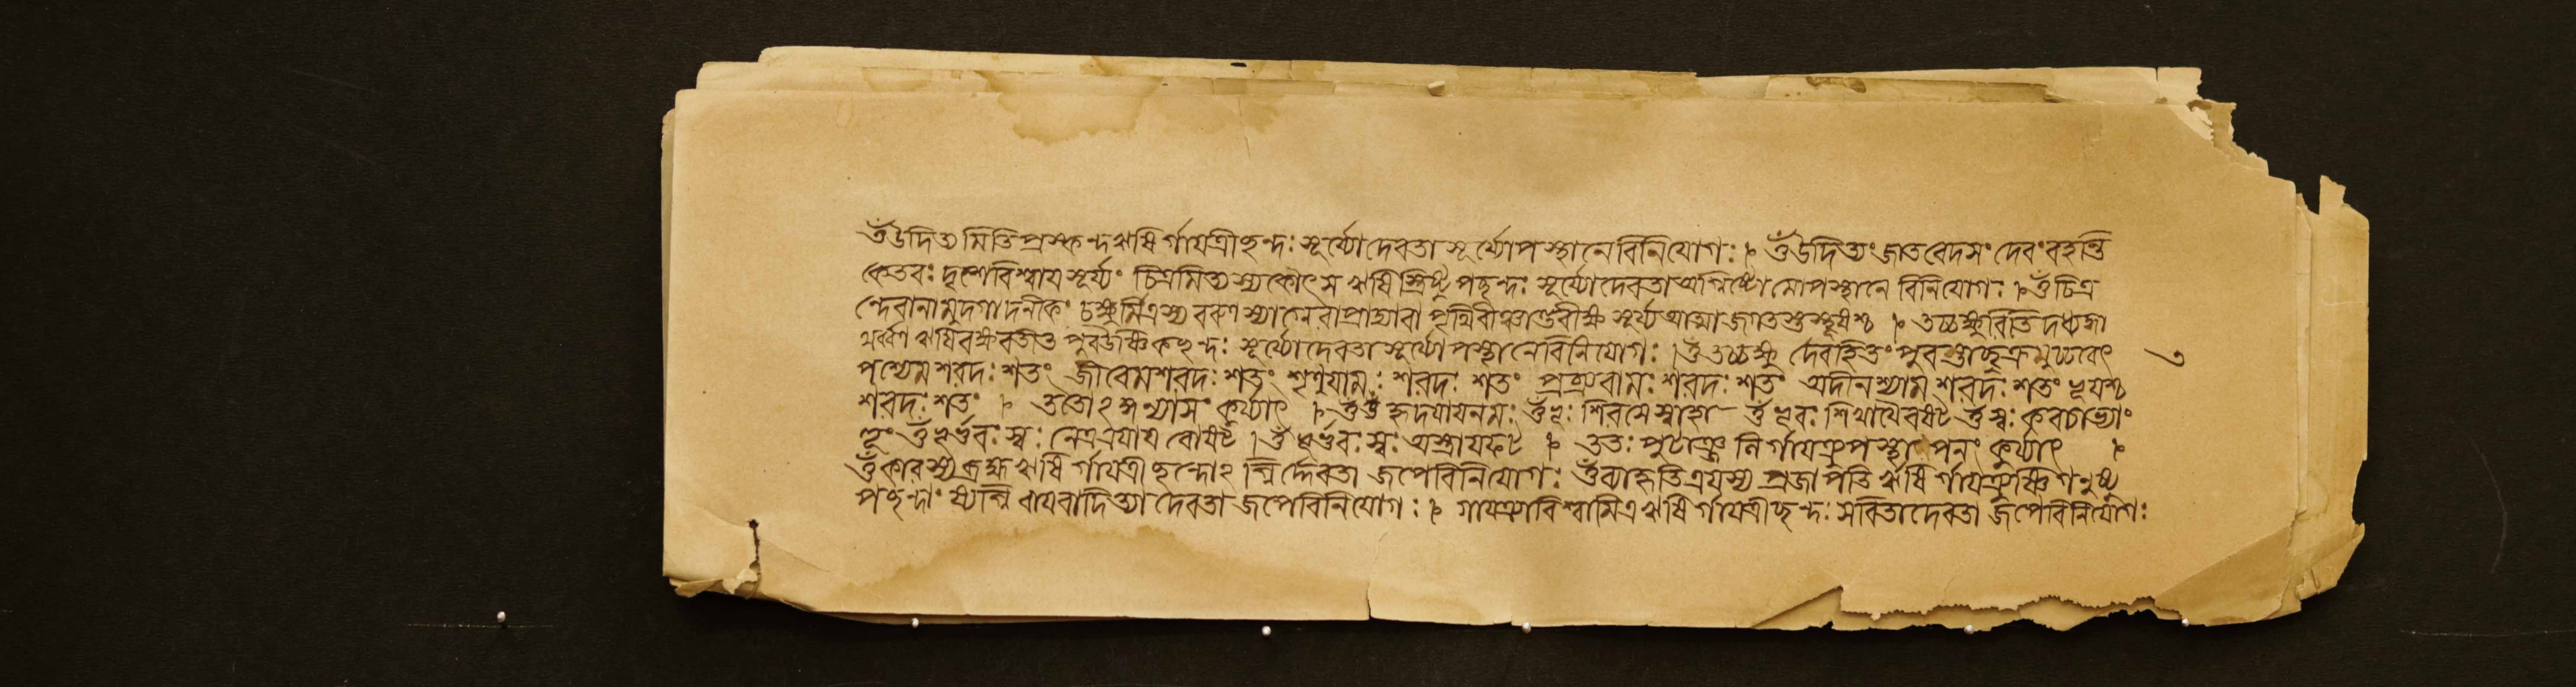 ওঁ উদিত্যমিতি প্রস্কন্দ ঋষি র্গায়ত্রীছন্দঃ সূর্য্যোদেবতা সূর্য্যোপস্থানে বিনিয়োগঃ । ওঁ উদিত্যং জাতবেদসং দেবং বহন্তি
কেতবঃ দৃশে বিশ্বায সূর্য্যং চিত্রমিত্যস্য কৌৎস ঋষি স্ত্রিষ্টুপছন্দঃ সূর্য্যোদেবতা অগ্নিষ্টোমোপস্থানে বিনিযোগঃ । ওঁ চিত্র
ন্দেবানামুদগাদনীকং চক্ষুর্মিত্রস্য বরুণস্যাগ্নে রাপ্রাদ্যাবা পৃথিবীঞ্চান্তরীক্ষ সূর্য্য আত্মা জগতস্তস্থূষশ্চ । তচ্চক্ষুরিতি দধ্যঙ্গা
থর্ব্বণ ঋষি পুরউষ্ণিকছন্দঃ সূর্য্যোদেবতা সূর্য্যোপস্থানে বিনিযোগঃ । ওঁ তচ্চক্ষু র্দেবহিতং পুরস্তাচ্ছুক্রমুচ্চরেৎ ৩
পশ্যেম শরদঃ শতং জীবেম শরদঃ শতং শৃণুযামঃ শরদঃ শতং প্রব্রুবামঃ শরদঃ শতং অদীনস্যাম শরদঃ শতং ভূযশ্চ
শরদঃ শতং । ততোঽঙ্গন্যাসং কুর্য্যাৎ । ওঁ হৃদযাযনমঃ ওঁ ভূঃ শিরসে স্বাহা ওঁ ভুবঃ শিখাযৈ বষট ওঁ স্বঃ কবচাভ্যাং
হূং ওঁ ভূর্ভুবঃ স্বঃ নেত্রত্রযায বৌষট । ওঁ ভূর্ভুবঃ স্বঃ অস্ত্রায ফট । ততঃ পুটাঞ্জ নির্গাযত্র্যুপস্থাপনং কুর্য্যাৎ ।
ওঁকারস্য ব্রহ্ম ঋষি র্গাযত্রীছন্দোঽগ্নির্দ্দেবতা জপে বিনিযোগঃ ওঁ ব্যাহৃতিত্রযস্য প্রজাপতি ঋষি র্গাযত্র্যুষ্ণিগনুষ্টু
পছন্দাং স্যগ্নি বাযবাদিত্যা দেবতা জপে বিনিযোগঃ । গাযত্র্যা বিশ্বামিত্র ঋষি র্গাযত্রীছন্দঃ সবিতাদেবতা জপে বিনিযোগঃ